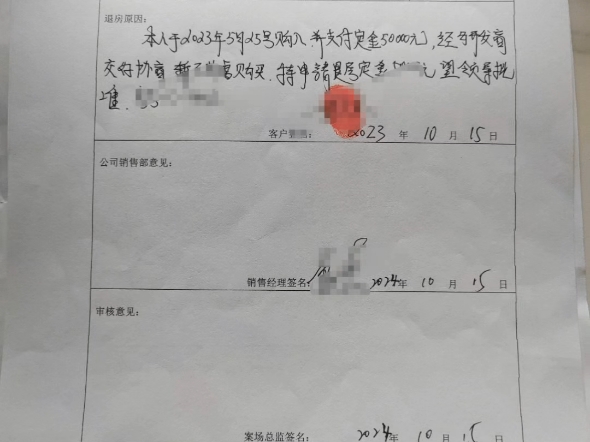 退房原因:
本人于2023年5月25号购入并支付定金50000元,经与开发商
交付协商 暂不 购买.特申请退居定金 元 望领导批
准.
客户 : 2023 年 10 月 15 日
公司销售部意见:
销售经理签名: 2024年 10 月 15 日
审核意见:
案场总监签名: 2024 年 10 月 15 日